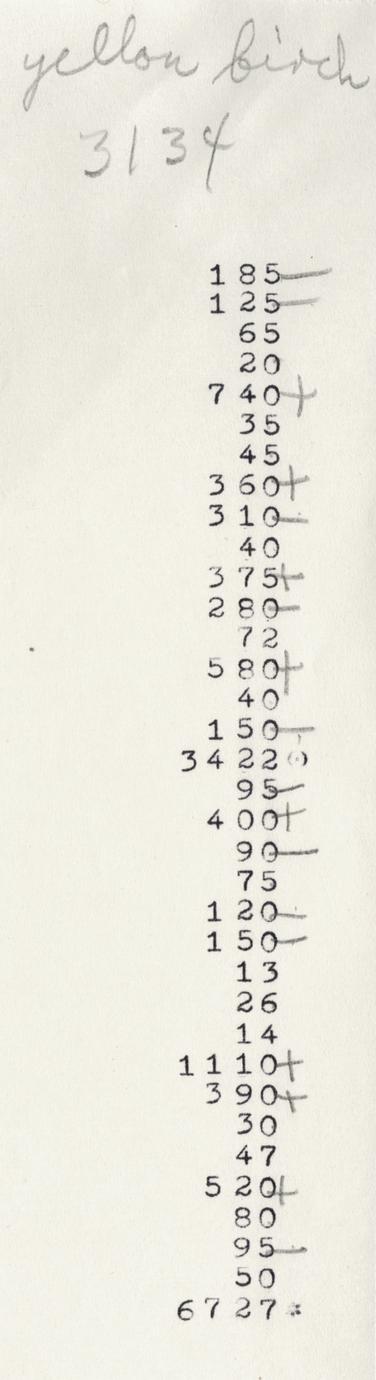 yellow birch
3134
1 85 —
1 25 —
65
20
7 40 +
35
45
3 60 +
3 10 —
40
3 75 +
2 80 —
72
5 80 +
40
1 50 —
34 22
95 —
4 00 +
90 —
75
1 20 —
1 50 —
13
26
14
11 10 +
3 90 +
30
47
5 20 +
80
95 —
50
67 27 *